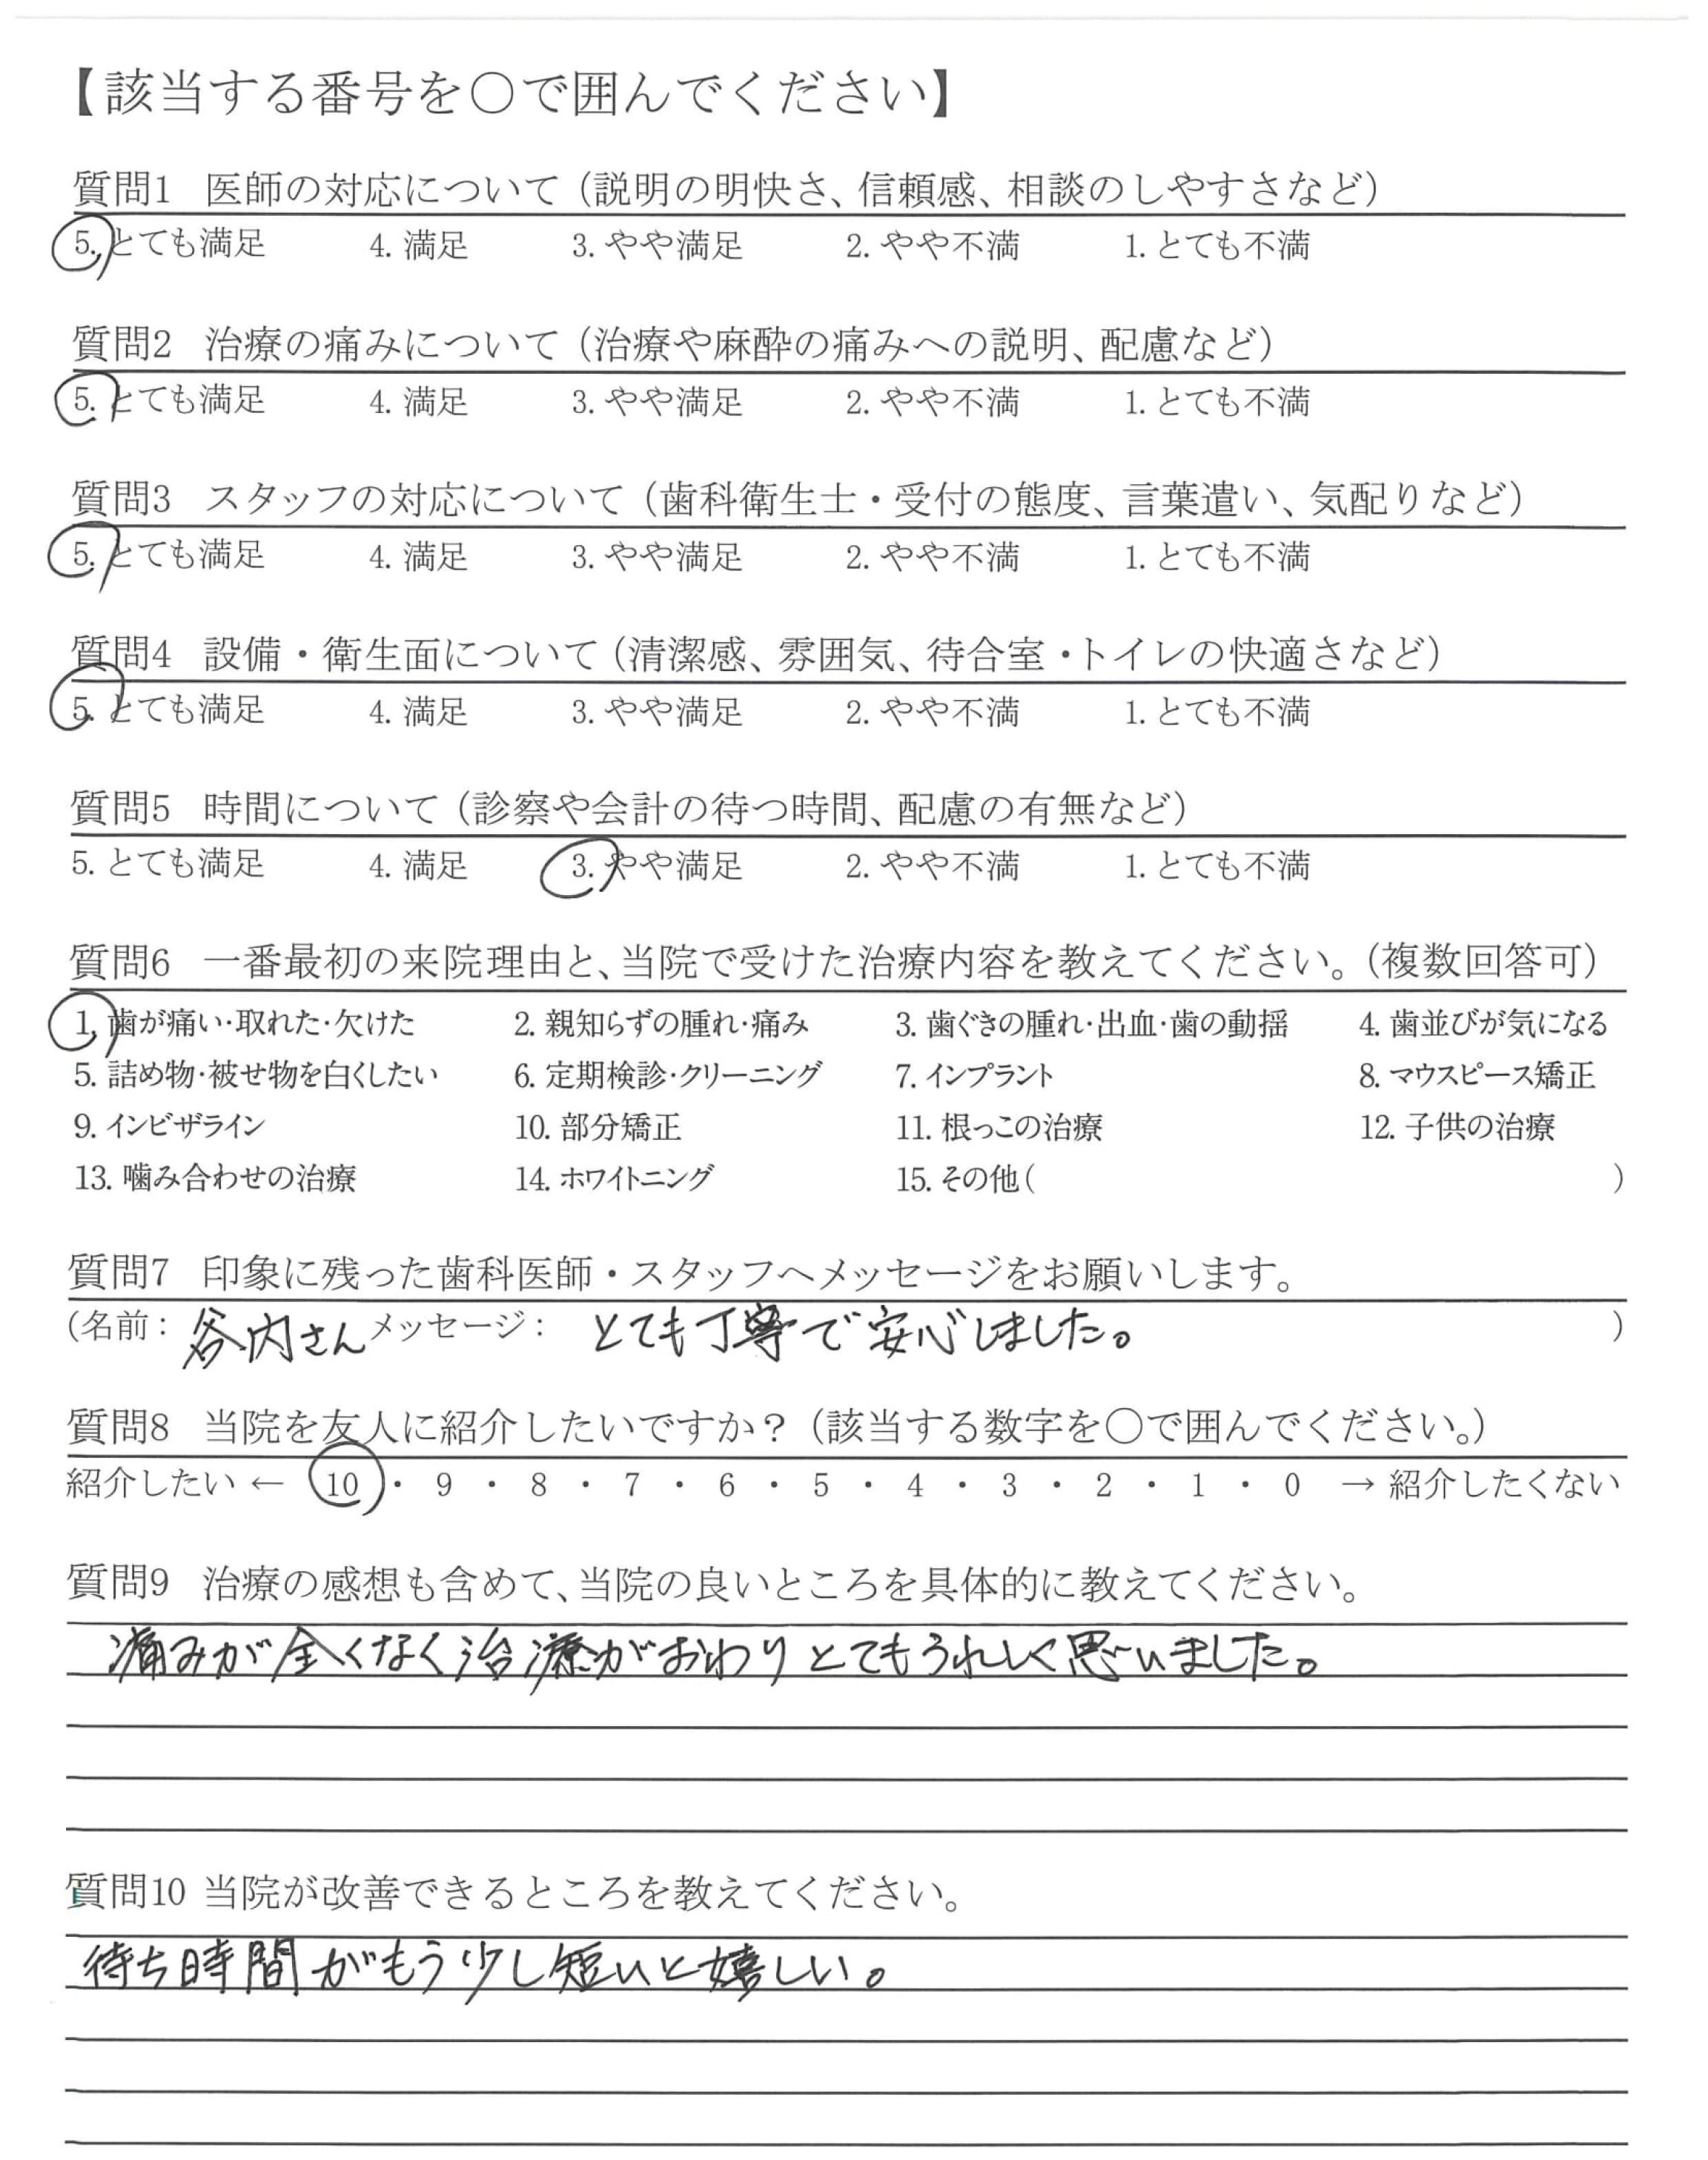 【該当する番号を○で囲んでください】
質問1 医師の対応について（説明の明快さ、信頼感、相談のしやすさなど）
5. とても満足 4. 満足 3. やや満足 2. やや不満 1. とても不満
質問2 治療の痛みについて（治療や麻酔の痛みへの説明、配慮など）
5. とても満足 4. 満足 3. やや満足 2. やや不満 1. とても不満
質問3 スタッフの対応について（歯科衛生士・受付の態度、言葉遣い、気配りなど）
5. とても満足 4. 満足 3. やや満足 2. やや不満 1. とても不満
質問4 設備・衛生面について（清潔感、雰囲気、待合室・トイレの快適さなど）
5. とても満足 4. 満足 3. やや満足 2. やや不満 1. とても不満
質問5 時間について（診察や会計の待つ時間、配慮の有無など）
5. とても満足 4. 満足 3. やや満足 2. やや不満 1. とても不満
質問6 一番最初の来院理由と、当院で受けた治療内容を教えてください。（複数回答可）
1. 歯が痛い・取れた・欠けた 2. 親知らずの腫れ・痛み 3. 歯ぐきの腫れ・出血・歯の動揺 4. 歯並びが気になる
5. 詰め物・被せ物を白くしたい 6. 定期検診・クリーニング 7. インプラント 8. マウスピース矯正
9. インビザライン 10. 部分矯正 11. 根っこの治療 12. 子供の治療
13. 噛み合わせの治療 14. ホワイトニング 15. その他（ ）
質問7 印象に残った歯科医師・スタッフへメッセージをお願いします。
（名前： 谷内さん メッセージ： とても丁寧で安心しました。 ）
質問8 当院を友人に紹介したいですか？（該当する数字を○で囲んでください。）
紹介したい ← 10 ・ 9 ・ 8 ・ 7 ・ 6 ・ 5 ・ 4 ・ 3 ・ 2 ・ 1 ・ 0 → 紹介したくない
質問9 治療の感想も含めて、当院の良いところを具体的に教えてください。
痛みが全くなく治療がおわりとてもうれしく思いました。
質問10 当院が改善できるところを教えてください。
待ち時間がもう少し短いと嬉しい。